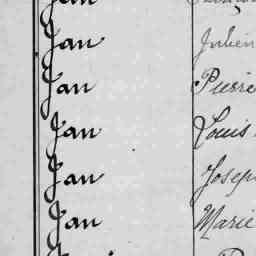 Jan
Jan Julien
Jan Pierre
Jan Louis
Jan Joseph
Jan Marie